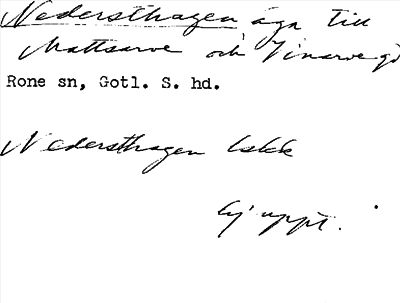 Nedersthagen äga till
Mattsarve och Vinarve gd
Rone sn, Gotl. S. hd.
Nedersthagen
Ej uppt.